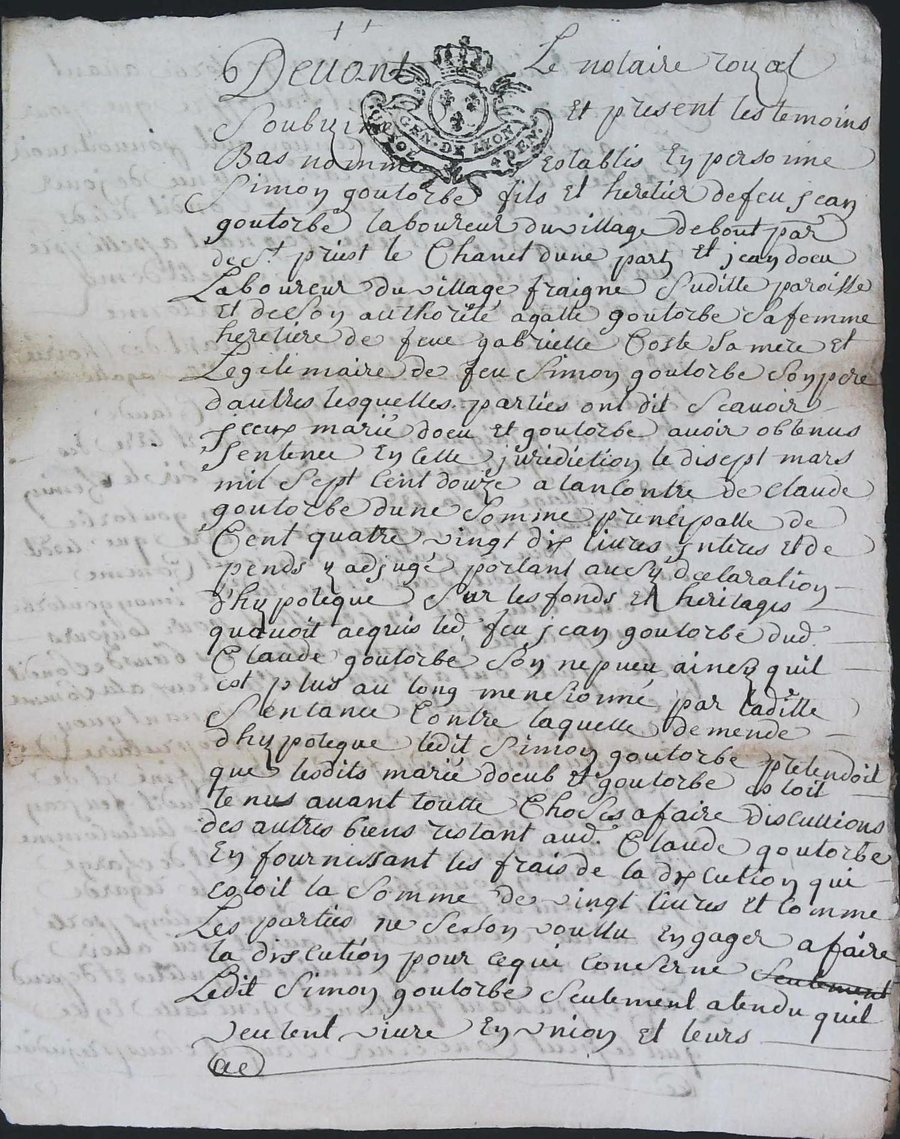 Devant Le notaire royal
GEN. DE LYON
4 DEN.
Soubz et present les temoins
Bas nomme Establis En personne
Simon goutorbe fils et heretier defeu jean
goutorbe laboureur du village debout par
de St priest le Chanet dune part Et jean docu
Laboureur du village fraigne Suditte paroisse
Et deson authorité agatte goutorbe Safemme
heretiere de feue gabrielle Coste Samere et
Legitimaire de feu Simon goutorbe Sonpere
dautres lesquelles parties ont dit Scavoir
jceux marié docu et goutorbe avoir obtenus
Sentence En cette jurediction le disept mars
mil Sept Cent douze alancontre de Claude
goutorbe dune Somme principalle de
Cent quatre vingt dix livres jnteres Et de
pends y adjugé portant aussy declaration
d'hypoteque Sur lesfonds Et heritages
quavoit acquis led. feu jean goutorbe dud
Claude goutorbe Son nepueu ainez quil
est plus au long mensionné par laditte
Sentance Contre laquelle demende
dhypoteque ledit Simon goutorbe pretendoit
que lesdits marié docub et goutorbe estoit
tenus avant toutte Choses afaire discutions
des autres biens restant aud. Claude goutorbe
En fournissant les frais de la discution qui
estoit la Somme de vingt livres et Comme
Les parties ne Seson voullu Engager afaire
la discution pour cequi Conserne Seulement
Ledit Simon goutorbe Seulement atendu quil
veulent vivre En union et leurs